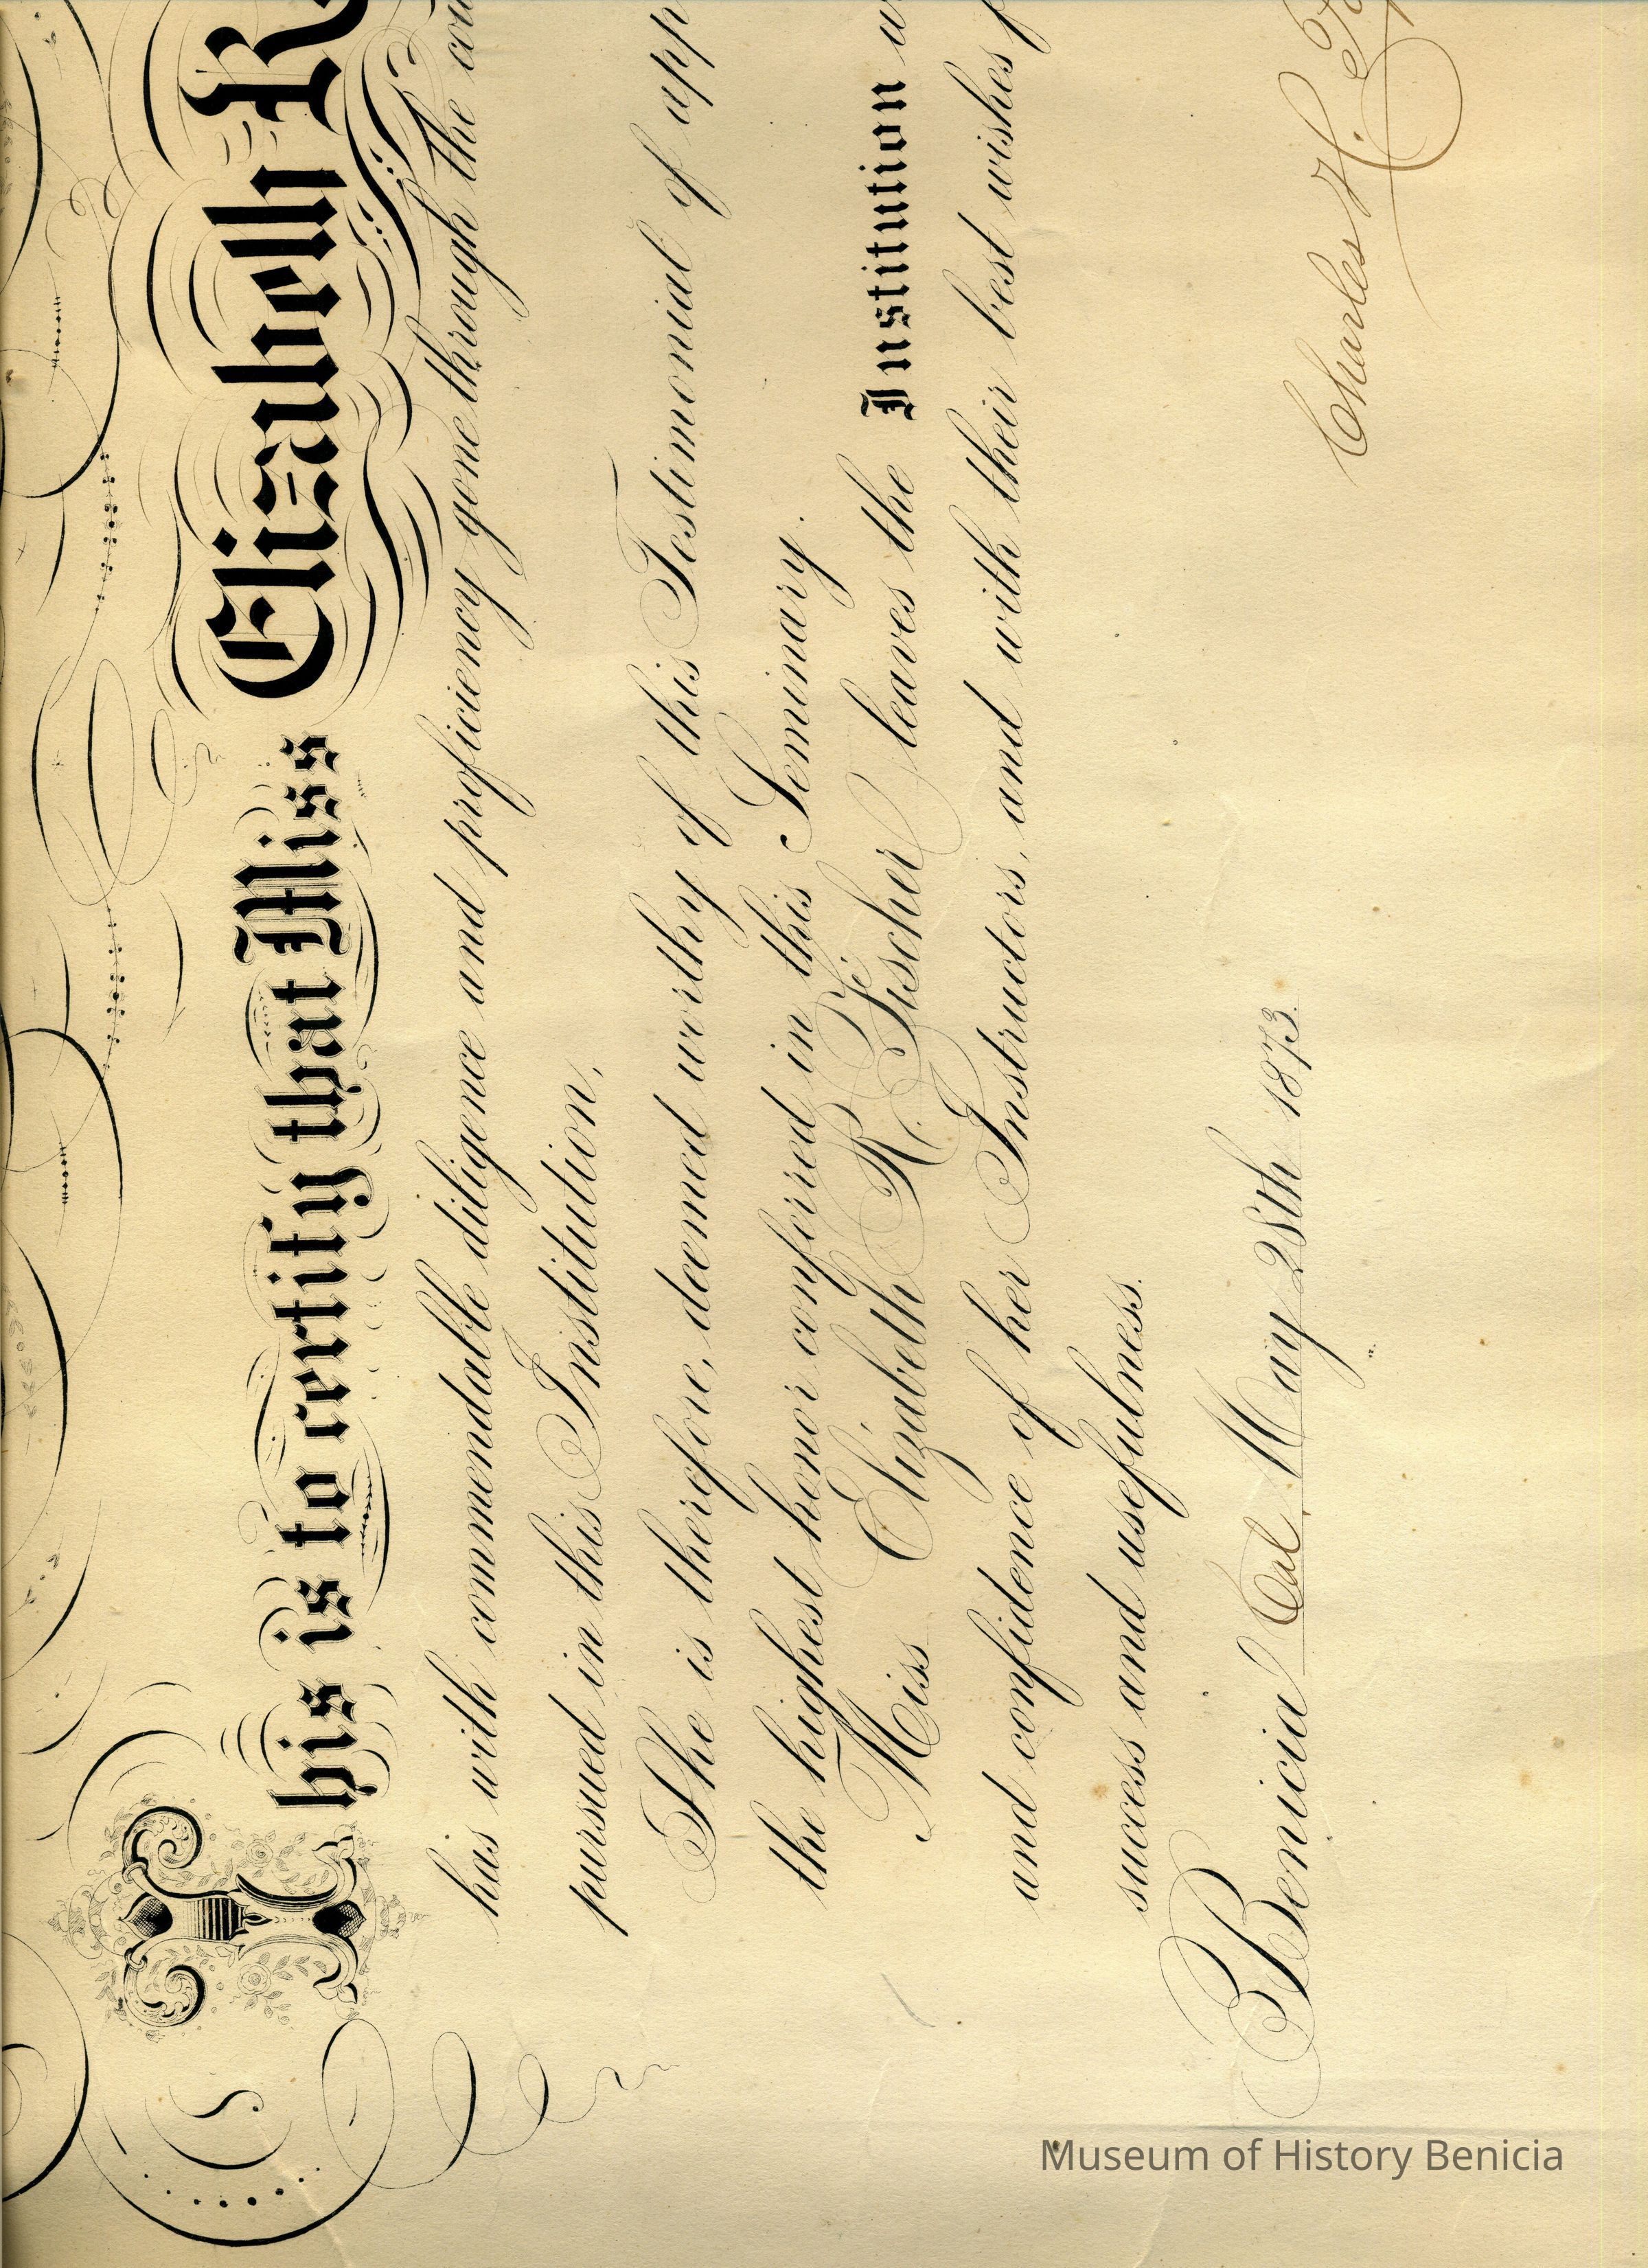 This is to certify that Miss Elizabeth R
has with commendable diligence and proficiency gone through the
pursued in this Institution,
She is therefore, deemed worthy of this Testimonial of app
the highest honor conferred in this Seminary.
Miss Elizabeth R Fischer leaves the Institution w
and confidence of her Instructors, and with their best wishes f
success and usefulness.
Benicia Cal. May 28th 1873.
Charles H.
Museum of History Benicia